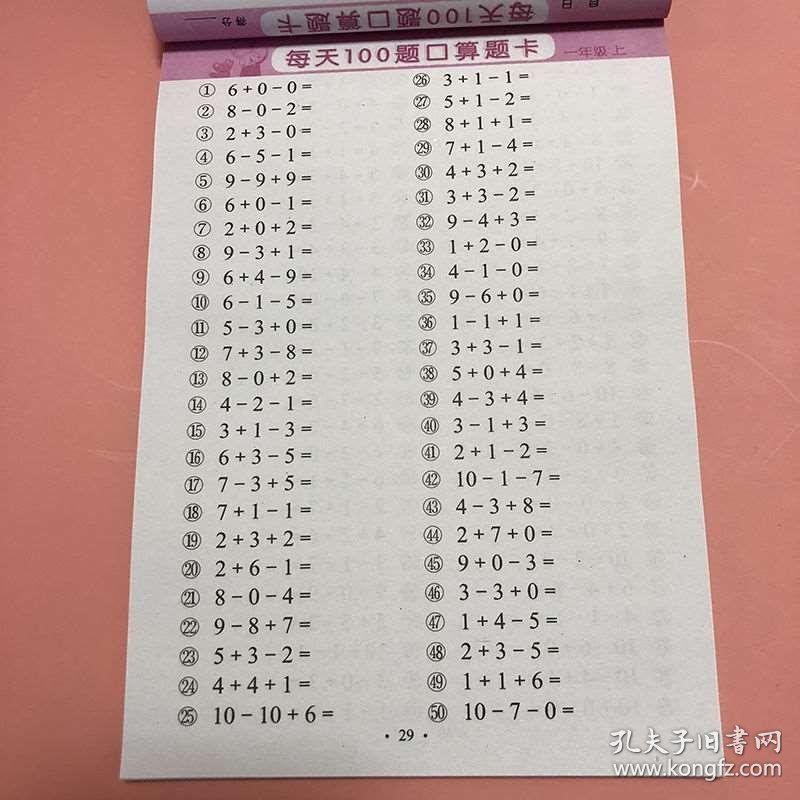 每天100题口算题卡
得分
每天100题口算题卡 一年级 上
① 6+0-0=
② 8-0-2=
③ 2+3-0=
④ 6-5-1=
⑤ 9-9+9=
⑥ 6+0-1=
⑦ 2+0+2=
⑧ 9-3+1=
⑨ 6+4-9=
⑩ 6-1-5=
⑪ 5-3+0=
⑫ 7+3-8=
⑬ 8-0+2=
⑭ 4-2-1=
⑮ 3+1-3=
⑯ 6+3-5=
⑰ 7-3+5=
⑱ 7+1-1=
⑲ 2+3+2=
⑳ 2+6-1=
㉑ 8-0-4=
㉒ 9-8+7=
㉓ 5+3-2=
㉔ 4+4+1=
㉕ 10-10+6=
㉖ 3+1-1=
㉗ 5+1-2=
㉘ 8+1+1=
㉙ 7+1-4=
㉚ 4+3+2=
㉛ 3+3-2=
㉜ 9-4+3=
㉝ 1+2-0=
㉞ 4-1-0=
㉟ 9-6+0=
㊱ 1-1+1=
㊲ 3+3-1=
㊳ 5+0+4=
㊴ 4-3+4=
㊵ 3-1+3=
㊶ 2+1-2=
㊷ 10-1-7=
㊸ 4-3+8=
㊹ 2+7+0=
㊺ 9+0-3=
㊻ 3-3+0=
㊼ 1+4-5=
㊽ 2+3-5=
㊾ 1+1+6=
㊿ 10-7-0=
· 29 ·
孔夫子旧书网
www.kongfz.com